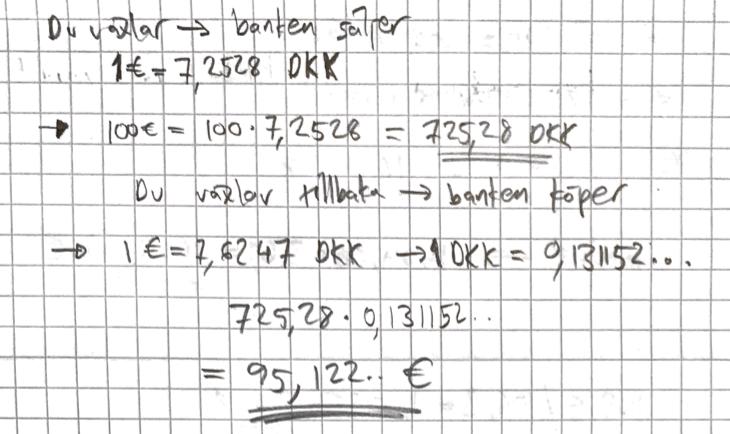 Du växlar → banken säljer
1€ = 7,2528 DKK
→ 100€ = 100 · 7,2528 = 725,28 DKK
Du växlar tillbaka → banken köper
→ 1 € = 7,6247 DKK → 1 DKK = 0,131152...
725,28 · 0,131152..
= 95,122.. €